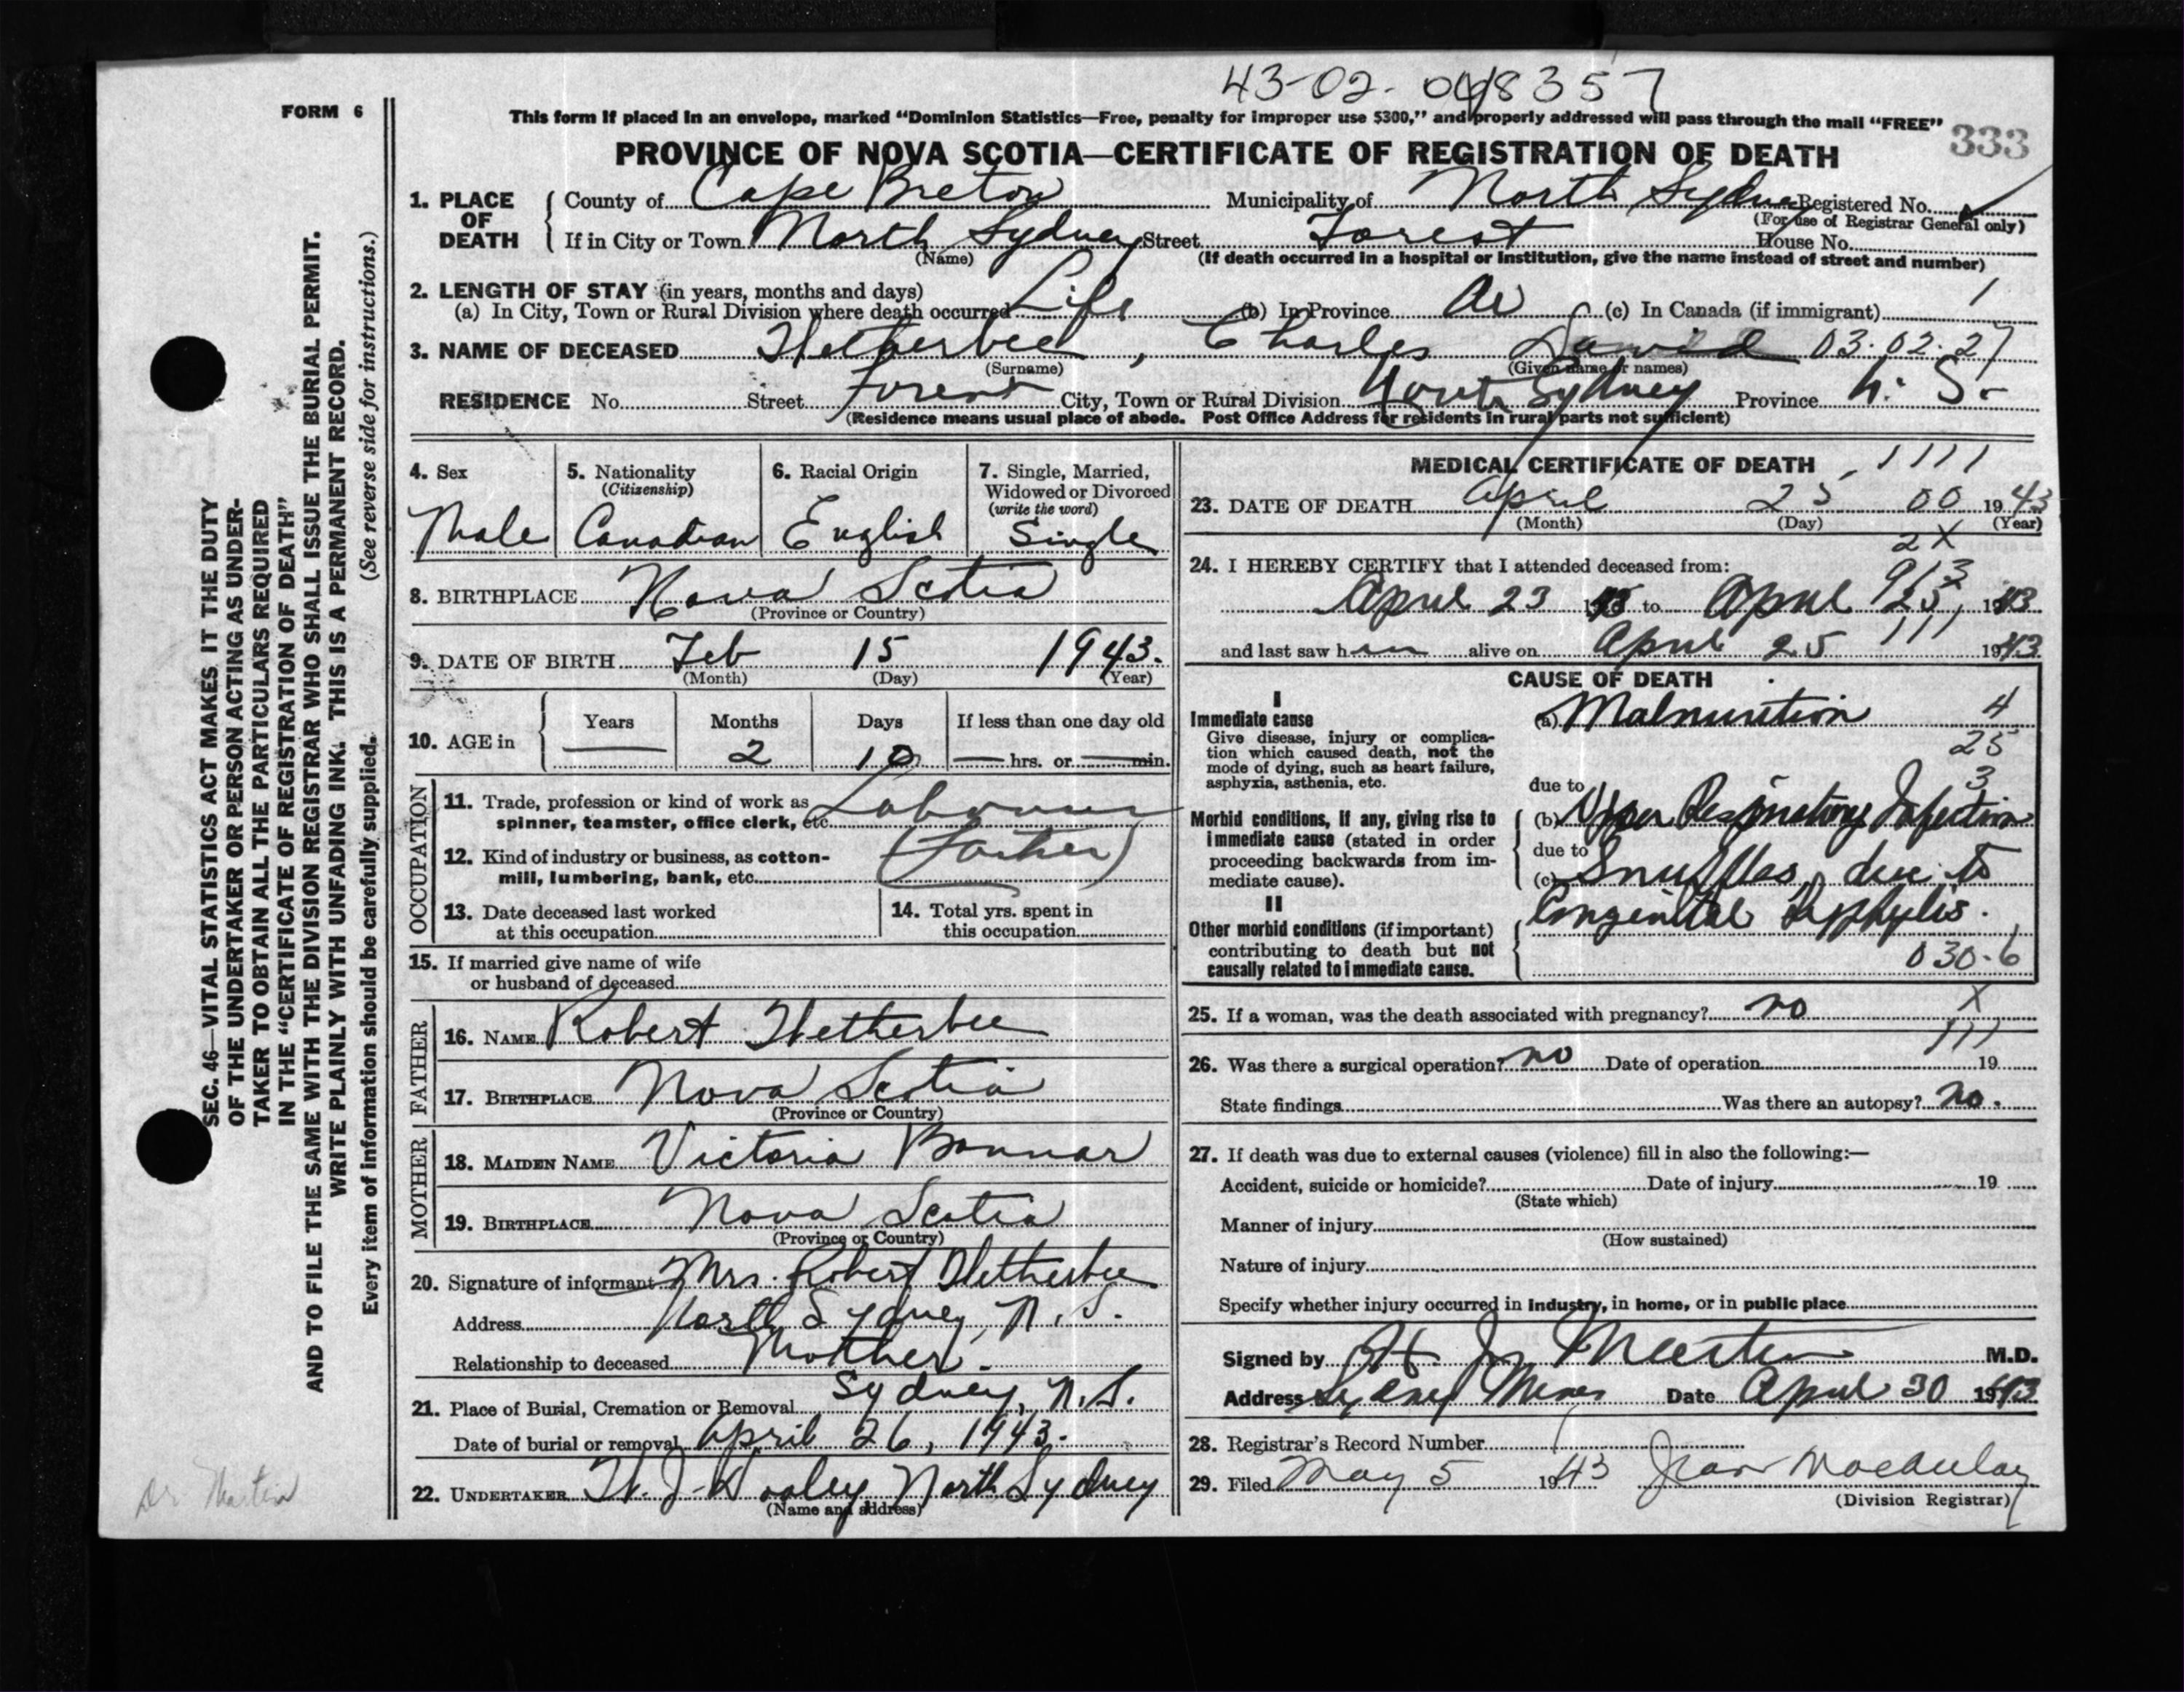 43-02-048357
FORM 6
This form if placed in an envelope, marked "Dominion Statistics—Free, penalty for improper use $300," and properly addressed will pass through the mail "FREE"
333
PROVINCE OF NOVA SCOTIA—CERTIFICATE OF REGISTRATION OF DEATH
1. PLACE OF DEATH
County of Cape Breton Municipality of North Sydney Registered No.
(For use of Registrar General only)
If in City or Town North Sydney Street Forest House No.
(Name) (If death occurred in a hospital or institution, give the name instead of street and number)
2. LENGTH OF STAY (in years, months and days)
(a) In City, Town or Rural Division where death occurred Life (b) In Province (c) In Canada (if immigrant) 1
3. NAME OF DECEASED , Charles David 03.02.27
(Surname) (Given name or names)
RESIDENCE No. Street Forest City, Town or Rural Division North Sydney Province N. S.
(Residence means usual place of abode. Post Office Address for residents in rural parts not sufficient)
4. Sex
Male
5. Nationality
(Citizenship)
Canadian
6. Racial Origin
English
7. Single, Married,
Widowed or Divorced
(write the word)
Single
8. BIRTHPLACE Nova Scotia
(Province or Country)
9. DATE OF BIRTH Feb 15 1943.
(Month) (Day) (Year)
10. AGE in
Years Months Days If less than one day old
— 2 10 — hrs. or — min.
OCCUPATION
11. Trade, profession or kind of work as
spinner, teamster, office clerk, etc. Labourer
12. Kind of industry or business, as cotton-
mill, lumbering, bank, etc. (Father)
13. Date deceased last worked
at this occupation
14. Total yrs. spent in
this occupation
15. If married give name of wife
or husband of deceased
FATHER
16. NAME Robert
17. BIRTHPLACE Nova Scotia
(Province or Country)
MOTHER
18. MAIDEN NAME Victoria Bonnar
19. BIRTHPLACE Nova Scotia
(Province or Country)
20. Signature of informant Mrs. Robert
Address North Sydney, N. S.
Relationship to deceased Mother.
21. Place of Burial, Cremation or Removal Sydney, N.S.
Date of burial or removal April 26, 1943.
22. UNDERTAKER Dooley North Sydney
(Name and address)
MEDICAL CERTIFICATE OF DEATH 1111
23. DATE OF DEATH April 25 00 1943
(Month) (Day) (Year)
2X
24. I HEREBY CERTIFY that I attended deceased from:
913
April 23 to April 25, 1943
111
and last saw him alive on April 25 1943
CAUSE OF DEATH
I
Immediate cause
Give disease, injury or complica-
tion which caused death, not the
mode of dying, such as heart failure,
asphyxia, asthenia, etc.
(a) Malnurition 4
25
due to 3
Morbid conditions, if any, giving rise to
immediate cause (stated in order
proceeding backwards from im-
mediate cause).
(b) Upper Respiratory Infection
due to
(c) Snuffles, due to
Congenital Syphylis.
II
Other morbid conditions (if important)
contributing to death but not
causally related to immediate cause.
030.6
25. If a woman, was the death associated with pregnancy? no X
111
26. Was there a surgical operation? no Date of operation 19
State findings Was there an autopsy? No.
27. If death was due to external causes (violence) fill in also the following:—
Accident, suicide or homicide? Date of injury 19
(State which)
Manner of injury
(How sustained)
Nature of injury
Specify whether injury occurred in industry, in home, or in public place
Signed by Martin M.D.
Address Sydney Mines Date April 30 1943
28. Registrar's Record Number
29. Filed May 5 1943 Jean MacAulay
(Division Registrar)
SEC. 46—VITAL STATISTICS ACT MAKES IT THE DUTY
OF THE UNDERTAKER OR PERSON ACTING AS UNDER-
TAKER TO OBTAIN ALL THE PARTICULARS REQUIRED
IN THE "CERTIFICATE OF REGISTRATION OF DEATH"
AND TO FILE THE SAME WITH THE DIVISION REGISTRAR WHO SHALL ISSUE THE BURIAL PERMIT.
WRITE PLAINLY WITH UNFADING INK. THIS IS A PERMANENT RECORD.
Every item of information should be carefully supplied. (See reverse side for instructions.)
Dr. Martin